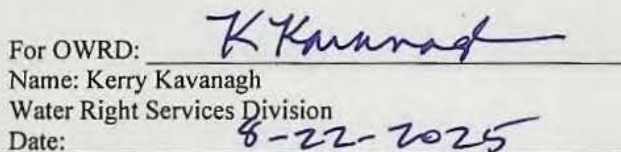 For OWRD: K Kavanagh
Name: Kerry Kavanagh
Water Right Services Division
Date: 8-22-2025